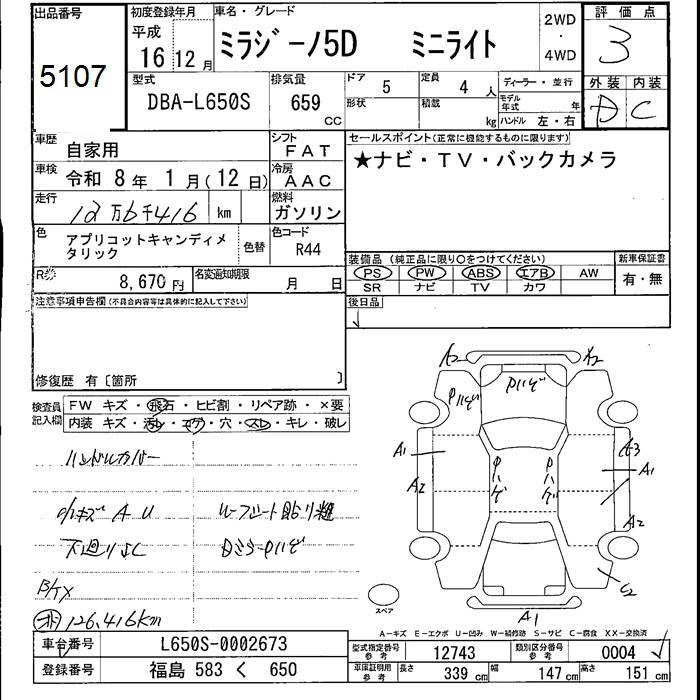 出品番号
5107
初度登録年月
平成
16 12月
車名・グレード
ミラジーノ5D ミニライト
2WD
・
4WD
評価点
3
型式
DBA-L650S
排気量
659
CC
ドア 5
定員 4 人
形状
積載 kg
ディーラー・並行
モデル年式 年
ハンドル 左・右
外装 内装
D C
車歴 自家用
シフト FAT
車検 令和 8年 1月(12日)
冷房 AAC
走行 12万6千416 km
燃料 ガソリン
色 アプリコットキャンディメタリック
色替
色コード R44
R券 8,670円
名変通知期限 月 日
セールスポイント(正常に機能するものに限ります)
★ナビ・TV・バックカメラ
装備品(純正品に限り○をつけてください)
PS PW ABS エアB AW
SR ナビ TV カワ
新車保証書
有・無
後日品
注意事項申告欄(不具合内容等は具体的に記入して下さい)
修復歴 有〔箇所 〕
検査員記入欄
FW キズ・飛石・ヒビ割・リペア跡・×要
内装 キズ・汚レ・コゲ・穴・スレ・キレ・破レ
ハンドルカバー
小キズ A U
ルーフシート貼り難
下廻りSC
DミラーPハゲ
B/TX
126,416km
A2
A2
Pハゲ
Pハゲ
A1
A2
Pハゲ
Pハゲ
A3
A1
A2
C2
A1
スペア
A-キズ E-エクボ U-凹み W-補修跡 S-サビ C-腐食 XX-交換済
車台番号 L650S-0002673
型式指定番号 参考 12743
類別区分番号 参考 0004
登録番号 福島 583 く 650
車庫証明用 参考 長さ 339 cm 幅 147 cm 高さ 151 cm